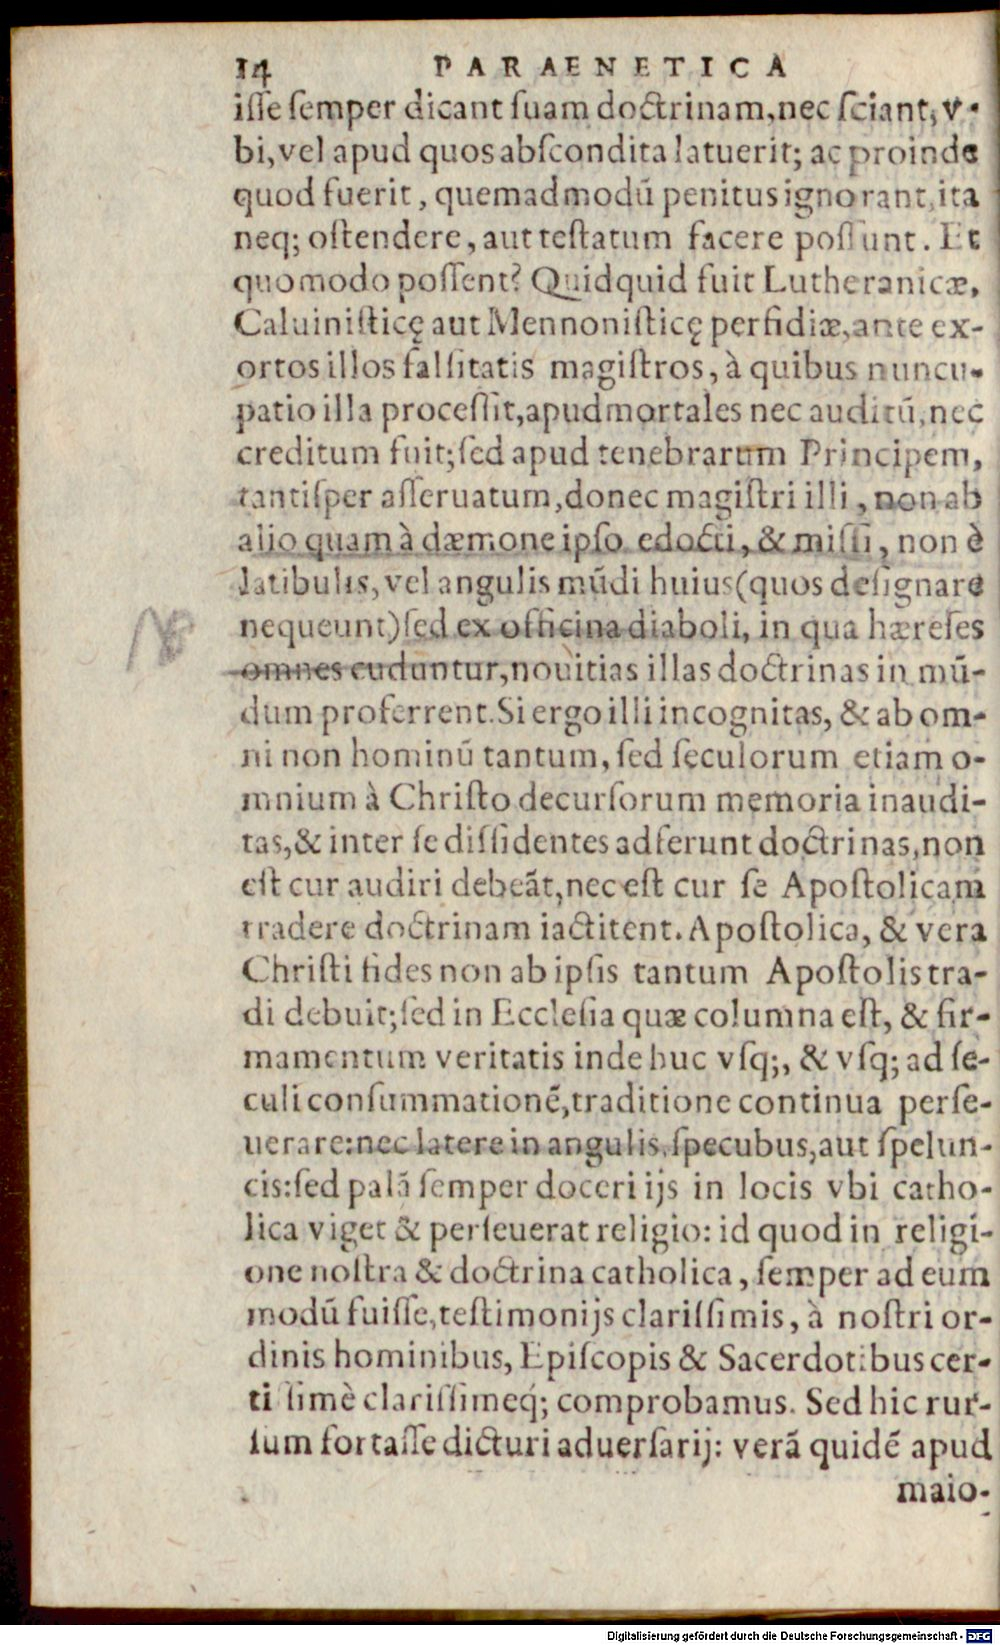 14 PARAENETICA
iſſe ſemper dicant ſuam doctrinam, nec ſciant, v-
bi, vel apud quos abſcondita latuerit; ac proinde
quod fuerit, quemadmodū penitus ignorant, ita
neq; oſtendere, aut teſtatum facere poſſunt. Et
quomodo poſſent? Quidquid fuit Lutheranicæ,
Caluiniſticę aut Mennoniſticę perfidiæ, ante ex-
ortos illos falſitatis magiſtros, à quibus nuncu-
patio illa proceſſit, apud mortales nec auditū, nec
creditum fuit; ſed apud tenebrarum Principem,
tantiſper aſſeruatum, donec magiſtri illi, non ab
alio quam à dæmone ipſo edocti, & miſſi, non è
latibulis, vel angulis mūdi huius (quos deſignare
nequeunt) ſed ex officina diaboli, in qua hæreſes
omnes cuduntur, nouitias illas doctrinas in mū-
dum proferrent. Si ergo illi incognitas, & ab om-
ni non hominū tantum, ſed ſeculorum etiam o-
mnium à Chriſto decurſorum memoria inaudi-
tas, & inter ſe diſſidentes adferunt doctrinas, non
eſt cur audiri debeāt, nec eſt cur ſe Apoſtolicam
tradere doctrinam iactitent. Apoſtolica, & vera
Chriſti fides non ab ipſis tantum Apoſtolis tra-
di debuit; ſed in Eccleſia quæ columna eſt, & fir-
mamentum veritatis inde huc vſq;, & vſq; ad ſe-
culi conſummationē, traditione continua perſe-
uerare: nec latere in angulis, ſpecubus, aut ſpelun-
cis: ſed palā ſemper doceri ijs in locis vbi catho-
lica viget & perſeuerat religio: id quod in religi-
one noſtra & doctrina catholica, ſemper ad eum
modū fuiſſe, teſtimonijs clariſſimis, à noſtri or-
dinis hominibus, Epiſcopis & Sacerdotibus cer-
tiſſimè clariſſimeq́; comprobamus. Sed hic rur-
ſum fortaſſe dicturi aduerſarij: verā quidē apud
maio-
Digitalisierung gefördert durch die Deutsche Forschungsgemeinschaft - DFG